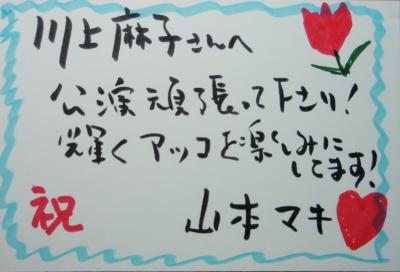 川上麻子さんへ
公演頑張って下さい!
輝くアッコを楽しみに
してます!
祝
山本マキ